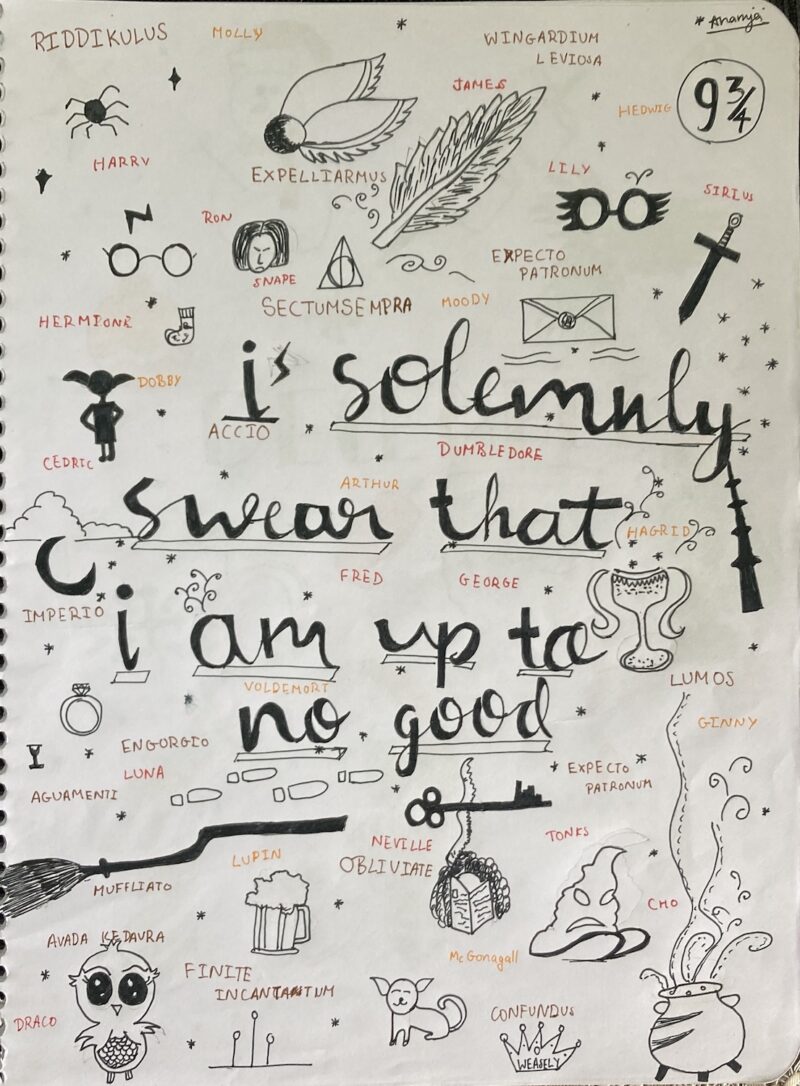 * Ananya
RIDDIKULUS
MOLLY
WINGARDIUM
LEVIOSA
JAMES
HEDWIG
9 3/4
HARRY
EXPELLIARMUS
LILY
SIRIUS
RON
SNAPE
EXPECTO
PATRONUM
SECTUMSEMPRA
MOODY
HERMIONE
DOBBY
i solemnly
ACCIO
DUMBLEDORE
CEDRIC
ARTHUR
swear that
HAGRID
FRED
GEORGE
IMPERIO
i am up to
LUMOS
VOLDEMORT
GINNY
no good
ENGORGIO
LUNA
EXPECTO
PATRONUM
AGUAMENTI
TONKS
NEVILLE
OBLIVIATE
LUPIN
MUFFLIATO
CHO
AVADA KEDAVRA
McGonagall
FINITE
INCANTANTUM
DRACO
CONFUNDUS
WEASELY